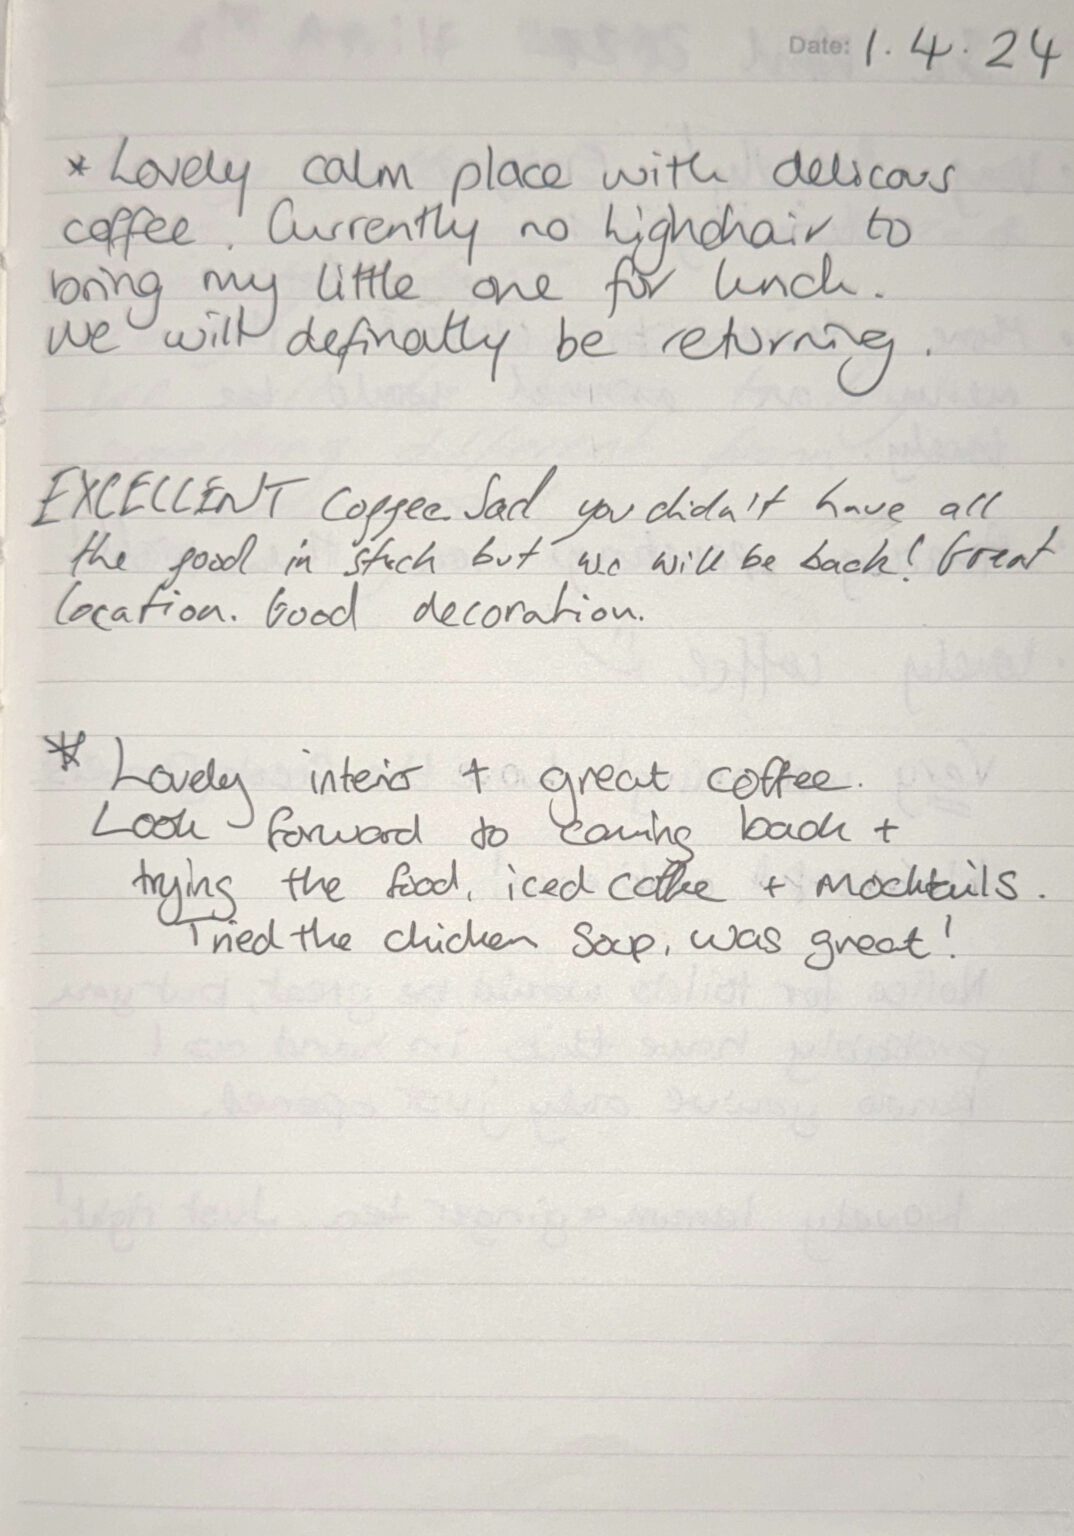 Date: 1.4.24
* Lovely calm place with delicous
coffee. Currently no highchair to
bring my little one for lunch.
We will definatly be returning.
EXCELLENT Coffee. Sad you didn't have all
the good in stock but we will be back! Great
location. Good decoration.
* Lovely interior + great coffee.
Look forward to coming back +
trying the food, iced coffee + mocktails.
Tried the chicken soup, was great!